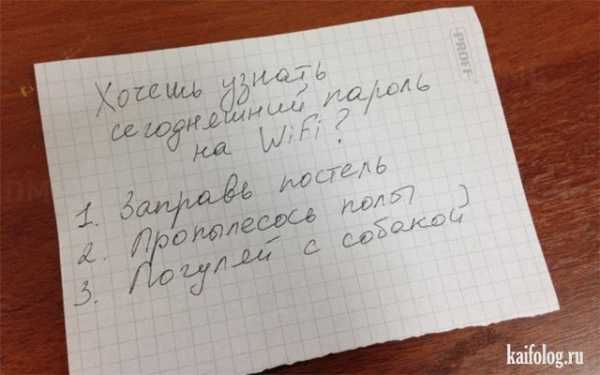 PROFF
Хочешь узнать
сегодняшний пароль
на WiFi?
1. Заправь постель
2. Пропылесось полы
3. Погуляй с собакой)
kaifolog.ru